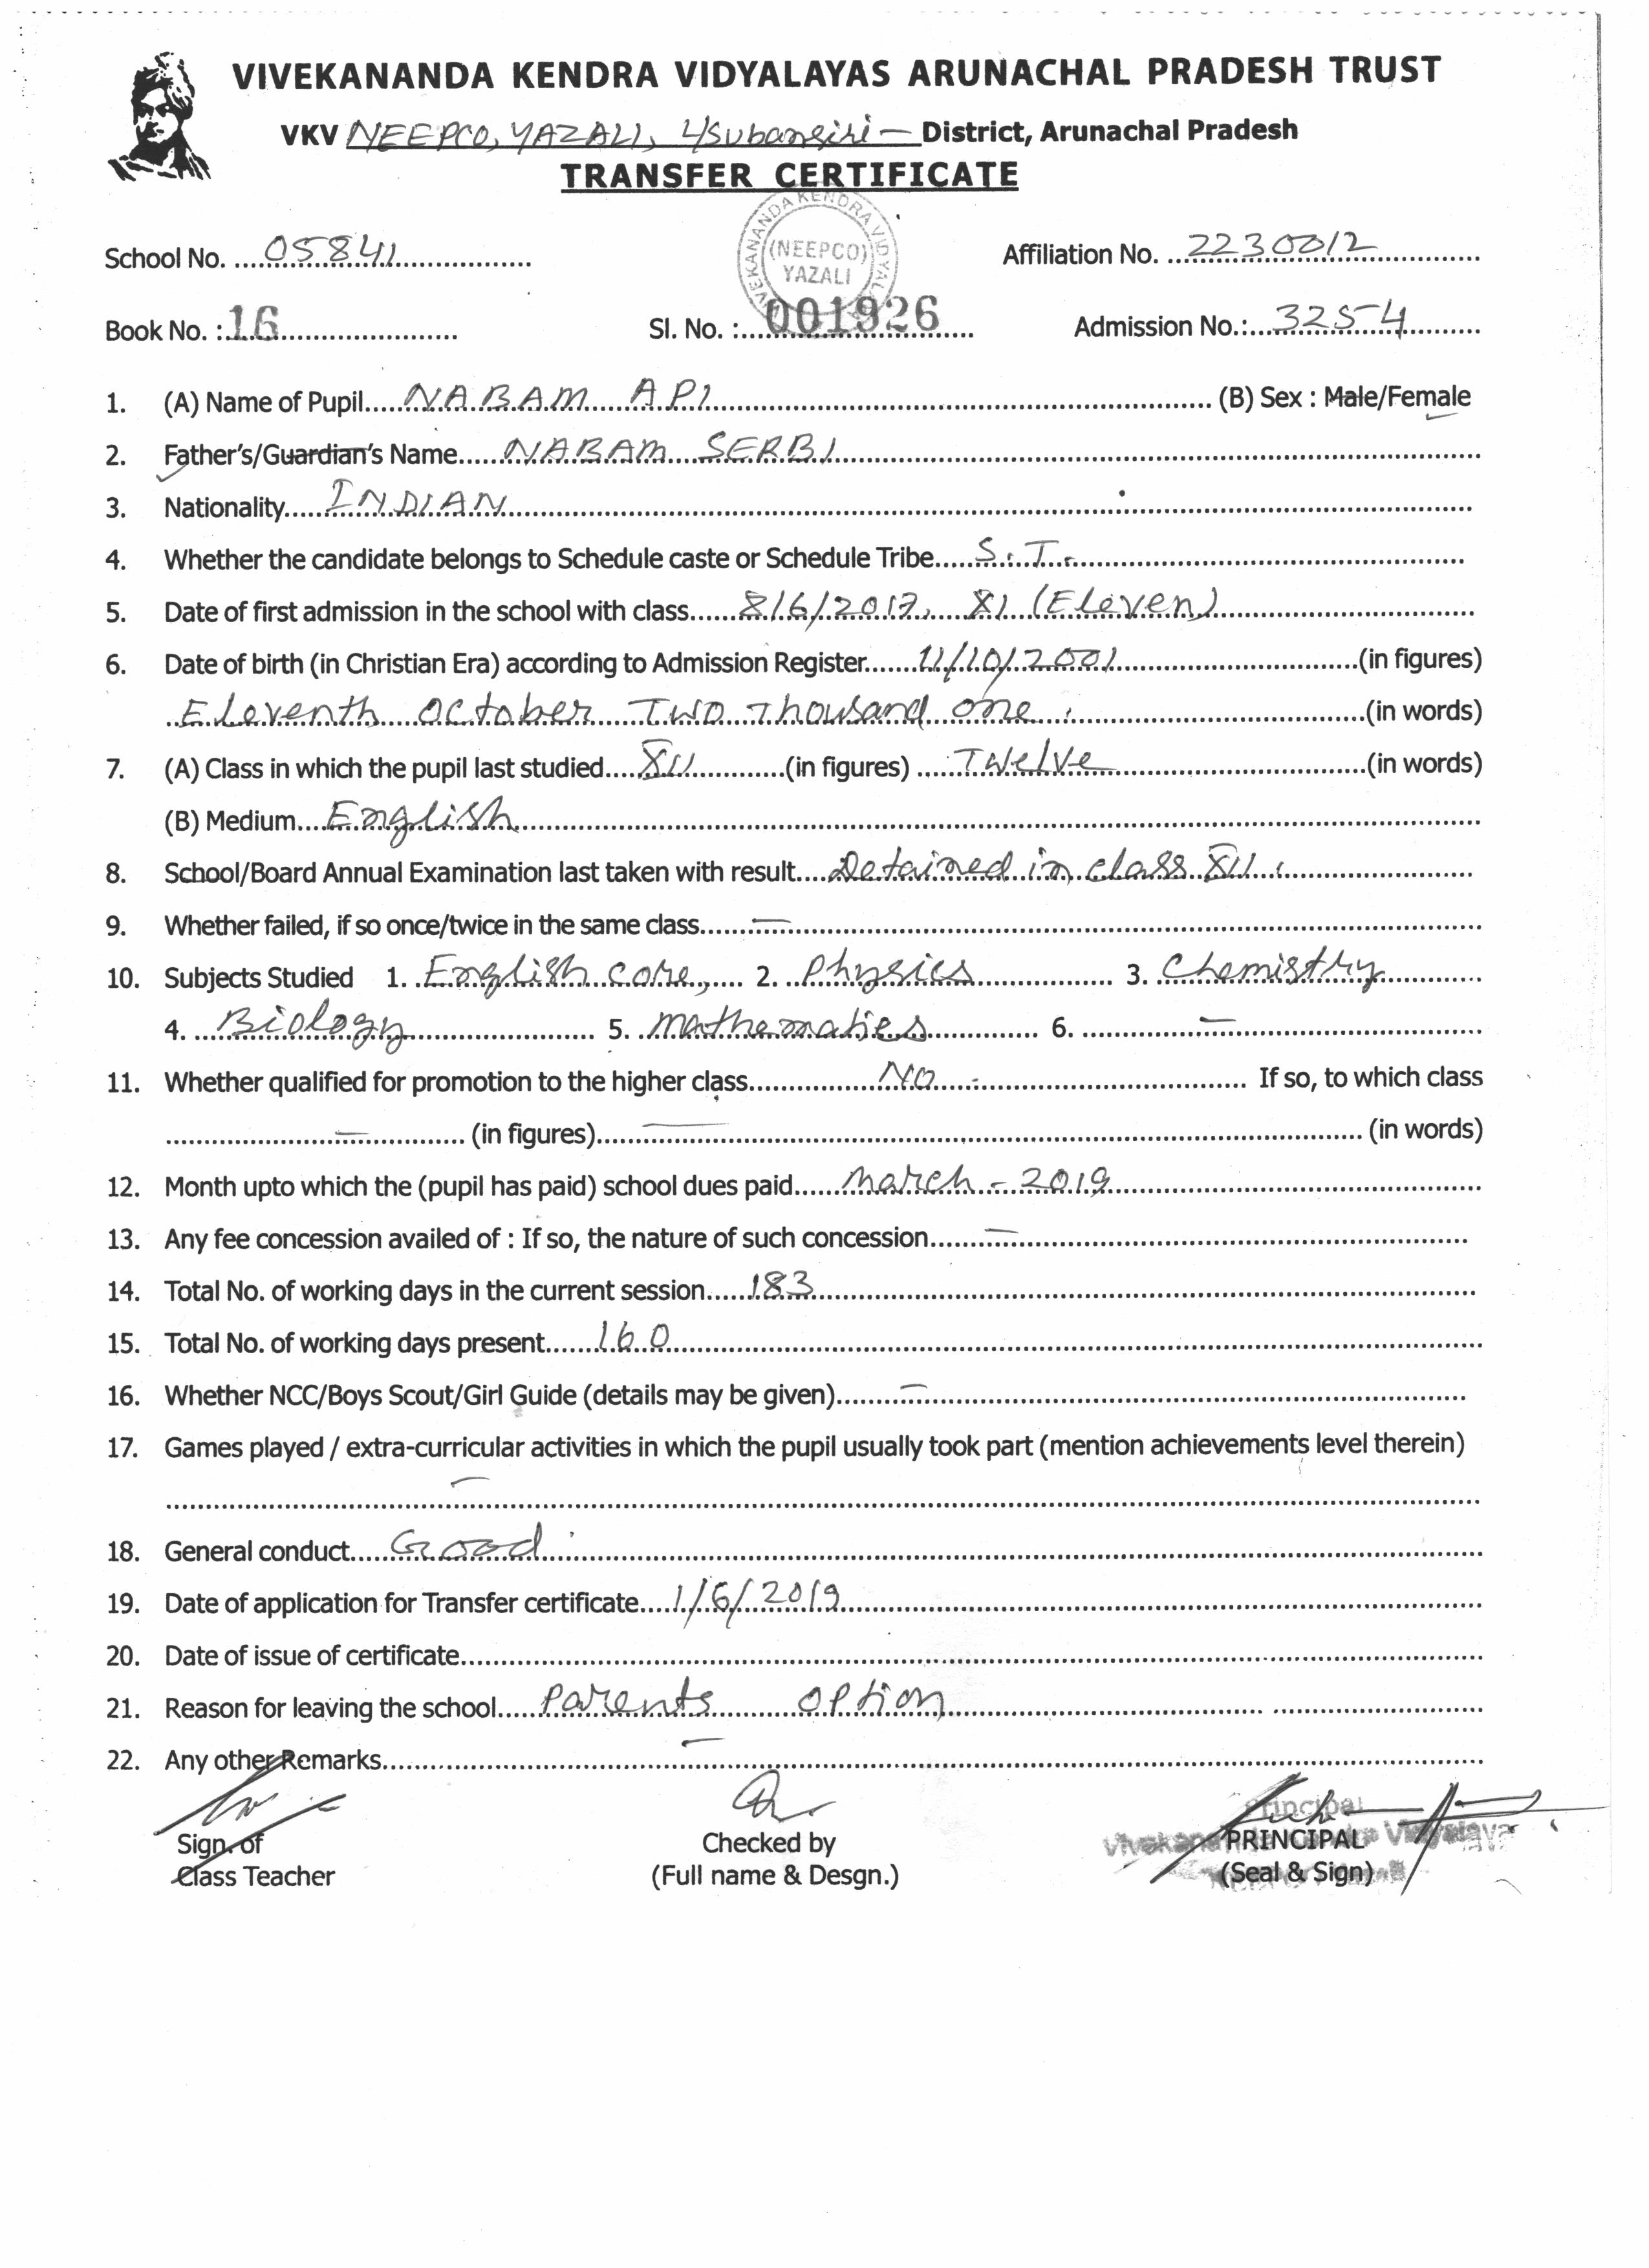 VIVEKANANDA KENDRA VIDYALAYAS ARUNACHAL PRADESH TRUST
VKV NEEPCO, YAZALI, L/Subansiri – District, Arunachal Pradesh
TRANSFER CERTIFICATE
VIVEKANANDA KENDRA VIDYALAYA
(NEEPCO)
YAZALI
School No. 05841 Affiliation No. 2230012
Book No. : 16 Sl. No. : 001926 Admission No.: 3254
1. (A) Name of Pupil NABAM API (B) Sex : Male/Female
2. Father's/Guardian's Name NABAM SERBI
3. Nationality INDIAN
4. Whether the candidate belongs to Schedule caste or Schedule Tribe S.T.
5. Date of first admission in the school with class 8/6/2017, XI (Eleven)
6. Date of birth (in Christian Era) according to Admission Register 11/10/2001 (in figures)
Eleventh October Two Thousand one. (in words)
7. (A) Class in which the pupil last studied XII (in figures) Twelve (in words)
(B) Medium English
8. School/Board Annual Examination last taken with result Detained in class XII.
9. Whether failed, if so once/twice in the same class —
10. Subjects Studied 1. English core, 2. Physics 3. Chemistry
4. Biology 5. Mathematics 6. —
11. Whether qualified for promotion to the higher class NO If so, to which class
— (in figures) — (in words)
12. Month upto which the (pupil has paid) school dues paid March - 2019
13. Any fee concession availed of : If so, the nature of such concession —
14. Total No. of working days in the current session 183
15. Total No. of working days present 160
16. Whether NCC/Boys Scout/Girl Guide (details may be given) —
17. Games played / extra-curricular activities in which the pupil usually took part (mention achievements level therein)
—
18. General conduct Good
19. Date of application for Transfer certificate 1/6/2019
20. Date of issue of certificate
21. Reason for leaving the school Parents option
22. Any other Remarks —
Sign. of Checked by PRINCIPAL
Class Teacher (Full name & Desgn.) (Seal & Sign)
Principal
Vivekananda Kendra Vidyalaya